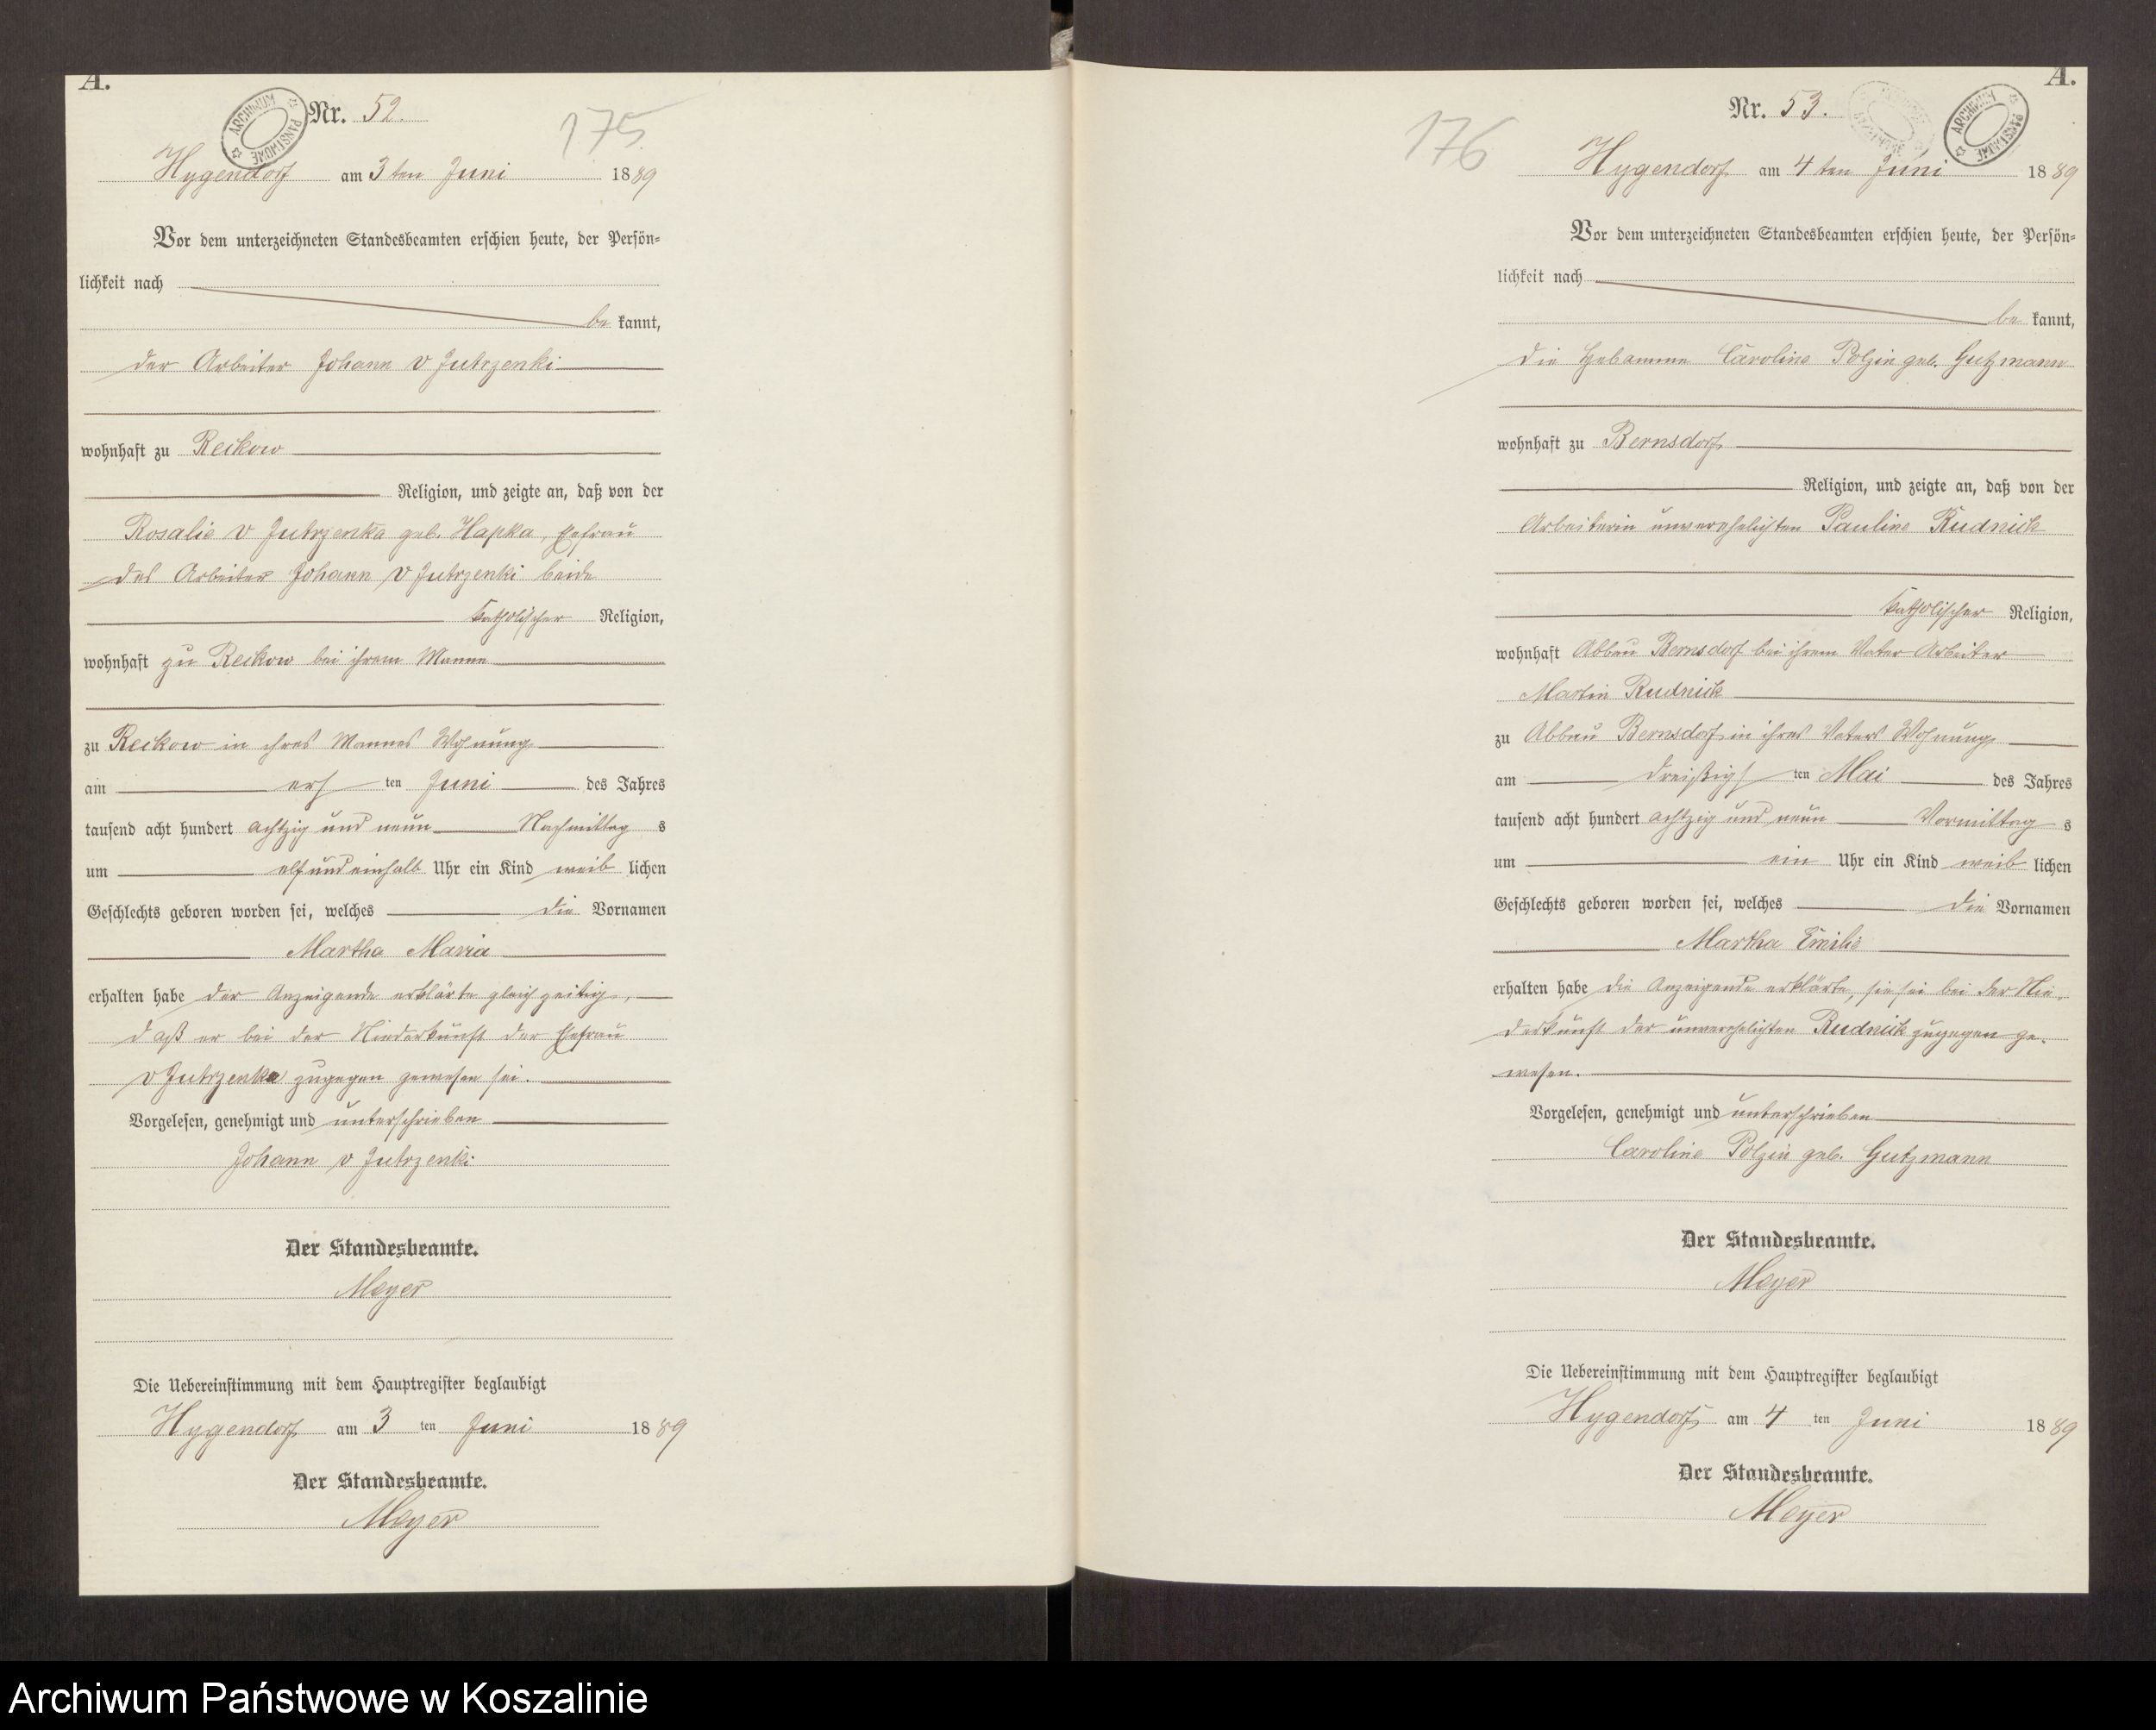 A.
Nr. 52.
175
Hygendorf am 3ten Juni 1889
Vor dem unterzeichneten Standesbeamten erschien heute, der Persön-
lichkeit nach
be kannt,
der Arbeiter Johann v Jutrzenki
wohnhaft zu Reckow
Religion, und zeigte an, daß von der
Rosalie v Jutrzenka geb. Hapka, Ehefrau
des Arbeiter Johann v Jutrzenki beide
katholischer Religion,
wohnhaft zu Reckow bei ihrem Manne
zu Reckow in ihres Mannes Wohnung
am erst ten Juni des Jahres
tausend acht hundert achtzig und neun Nachmittag s
um elf und einhalb Uhr ein Kind weib lichen
Geschlechts geboren worden sei, welches die Vornamen
Martha Maria
erhalten habe der Anzeigende erklärte gleichzeitig,
daß er bei der Niederkunft der Ehefrau
v Jutrzenka zugegen gewesen sei.
Vorgelesen, genehmigt und unterschrieben
Johann v Jutrzenki
Der Standesbeamte.
Meyer
Die Uebereinstimmung mit dem Hauptregister beglaubigt
Hygendorf am 3 ten Juni 1889
Der Standesbeamte.
Meyer
A.
Nr. 53.
176
Hygendorf am 4ten Juni 1889
Vor dem unterzeichneten Standesbeamten erschien heute, der Persön-
lichkeit nach
be kannt,
die Hebamme Caroline Polzin geb. Gutzmann
wohnhaft zu Bernsdorf
Religion, und zeigte an, daß von der
Arbeiterin unverehelichten Pauline Rudnick
katholischer Religion,
wohnhaft Abbau Bernsdorf bei ihrem Vater Arbeiter
Martin Rudnick
zu Abbau Bernsdorf in ihres Vaters Wohnung
am dreißigst ten Mai des Jahres
tausend acht hundert achtzig und neun Vormittag s
um ein Uhr ein Kind weib lichen
Geschlechts geboren worden sei, welches die Vornamen
Martha Emilie
erhalten habe die Anzeigende erklärte, sie sei bei der Nie-
derkunft der unverehelichten Rudnick zugegen ge-
wesen.
Vorgelesen, genehmigt und unterschrieben
Caroline Polzin geb. Gutzmann
Der Standesbeamte.
Meyer
Die Uebereinstimmung mit dem Hauptregister beglaubigt
Hygendorf am 4 ten Juni 1889
Der Standesbeamte.
Meyer
ARCHIWUM PAŃSTWOWE
ARCHIWUM PAŃSTWOWE
Archiwum Państwowe w Koszalinie